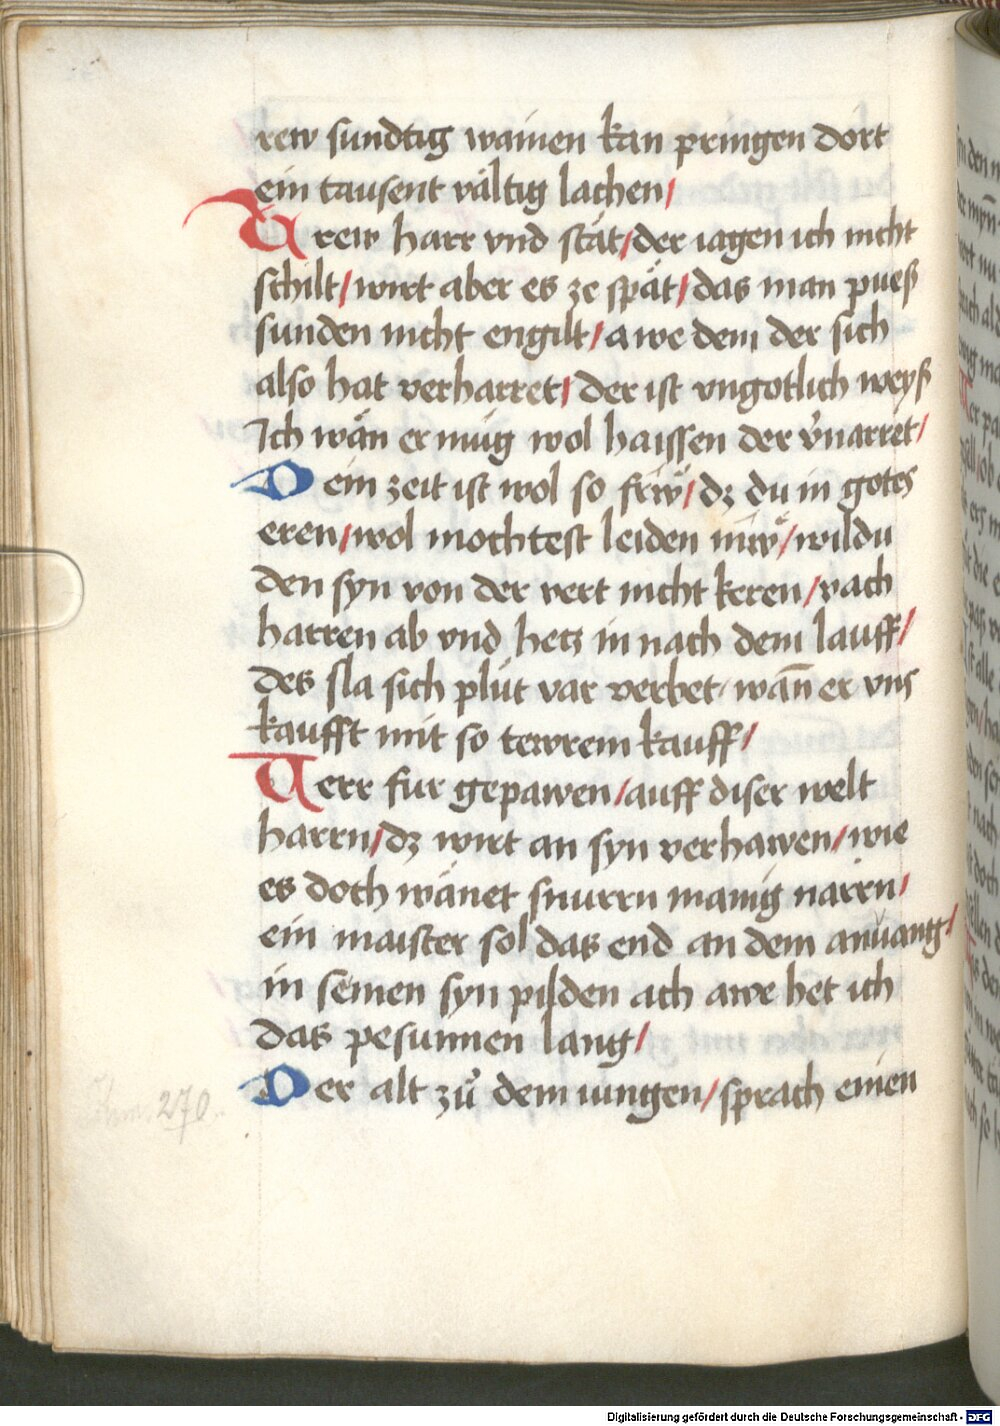 rew sundtig wainen kan pringen dort
ein tausent vältig lachen/
Trew harr vnd stät/der iagen ich nicht
schilt/wirt aber es ze spät/das man pueß
sunden nicht engilt/awe dem der sich
also hat verharret/der ist vngotlich weyß
Ich wän er müg wol haissen der v̉narret/
Dein zeit ist wol so frẅ/dz du in gotes
eren/wol mochtest leiden mẅ/wildu
den syn von der vert nicht keren/vach
harren ab vnd hetz in nach dem lauff/
des sla sich plůt var verbet/wañ er vns
kaufft mit so tewrem kauff/
Verr fur gepawen/auff diser welt
harrn/dz wirt an syn verhawen/wie
es doch wänet snurrn manig narrn/
ein maister sol das end an dem anuang/
in seinen syn pilden ach awe het ich
das pesunnen lang/
Der alt zů dem iungen/sprach einen
270
Digitalisierung gefördert durch die Deutsche Forschungsgemeinschaft - DFG